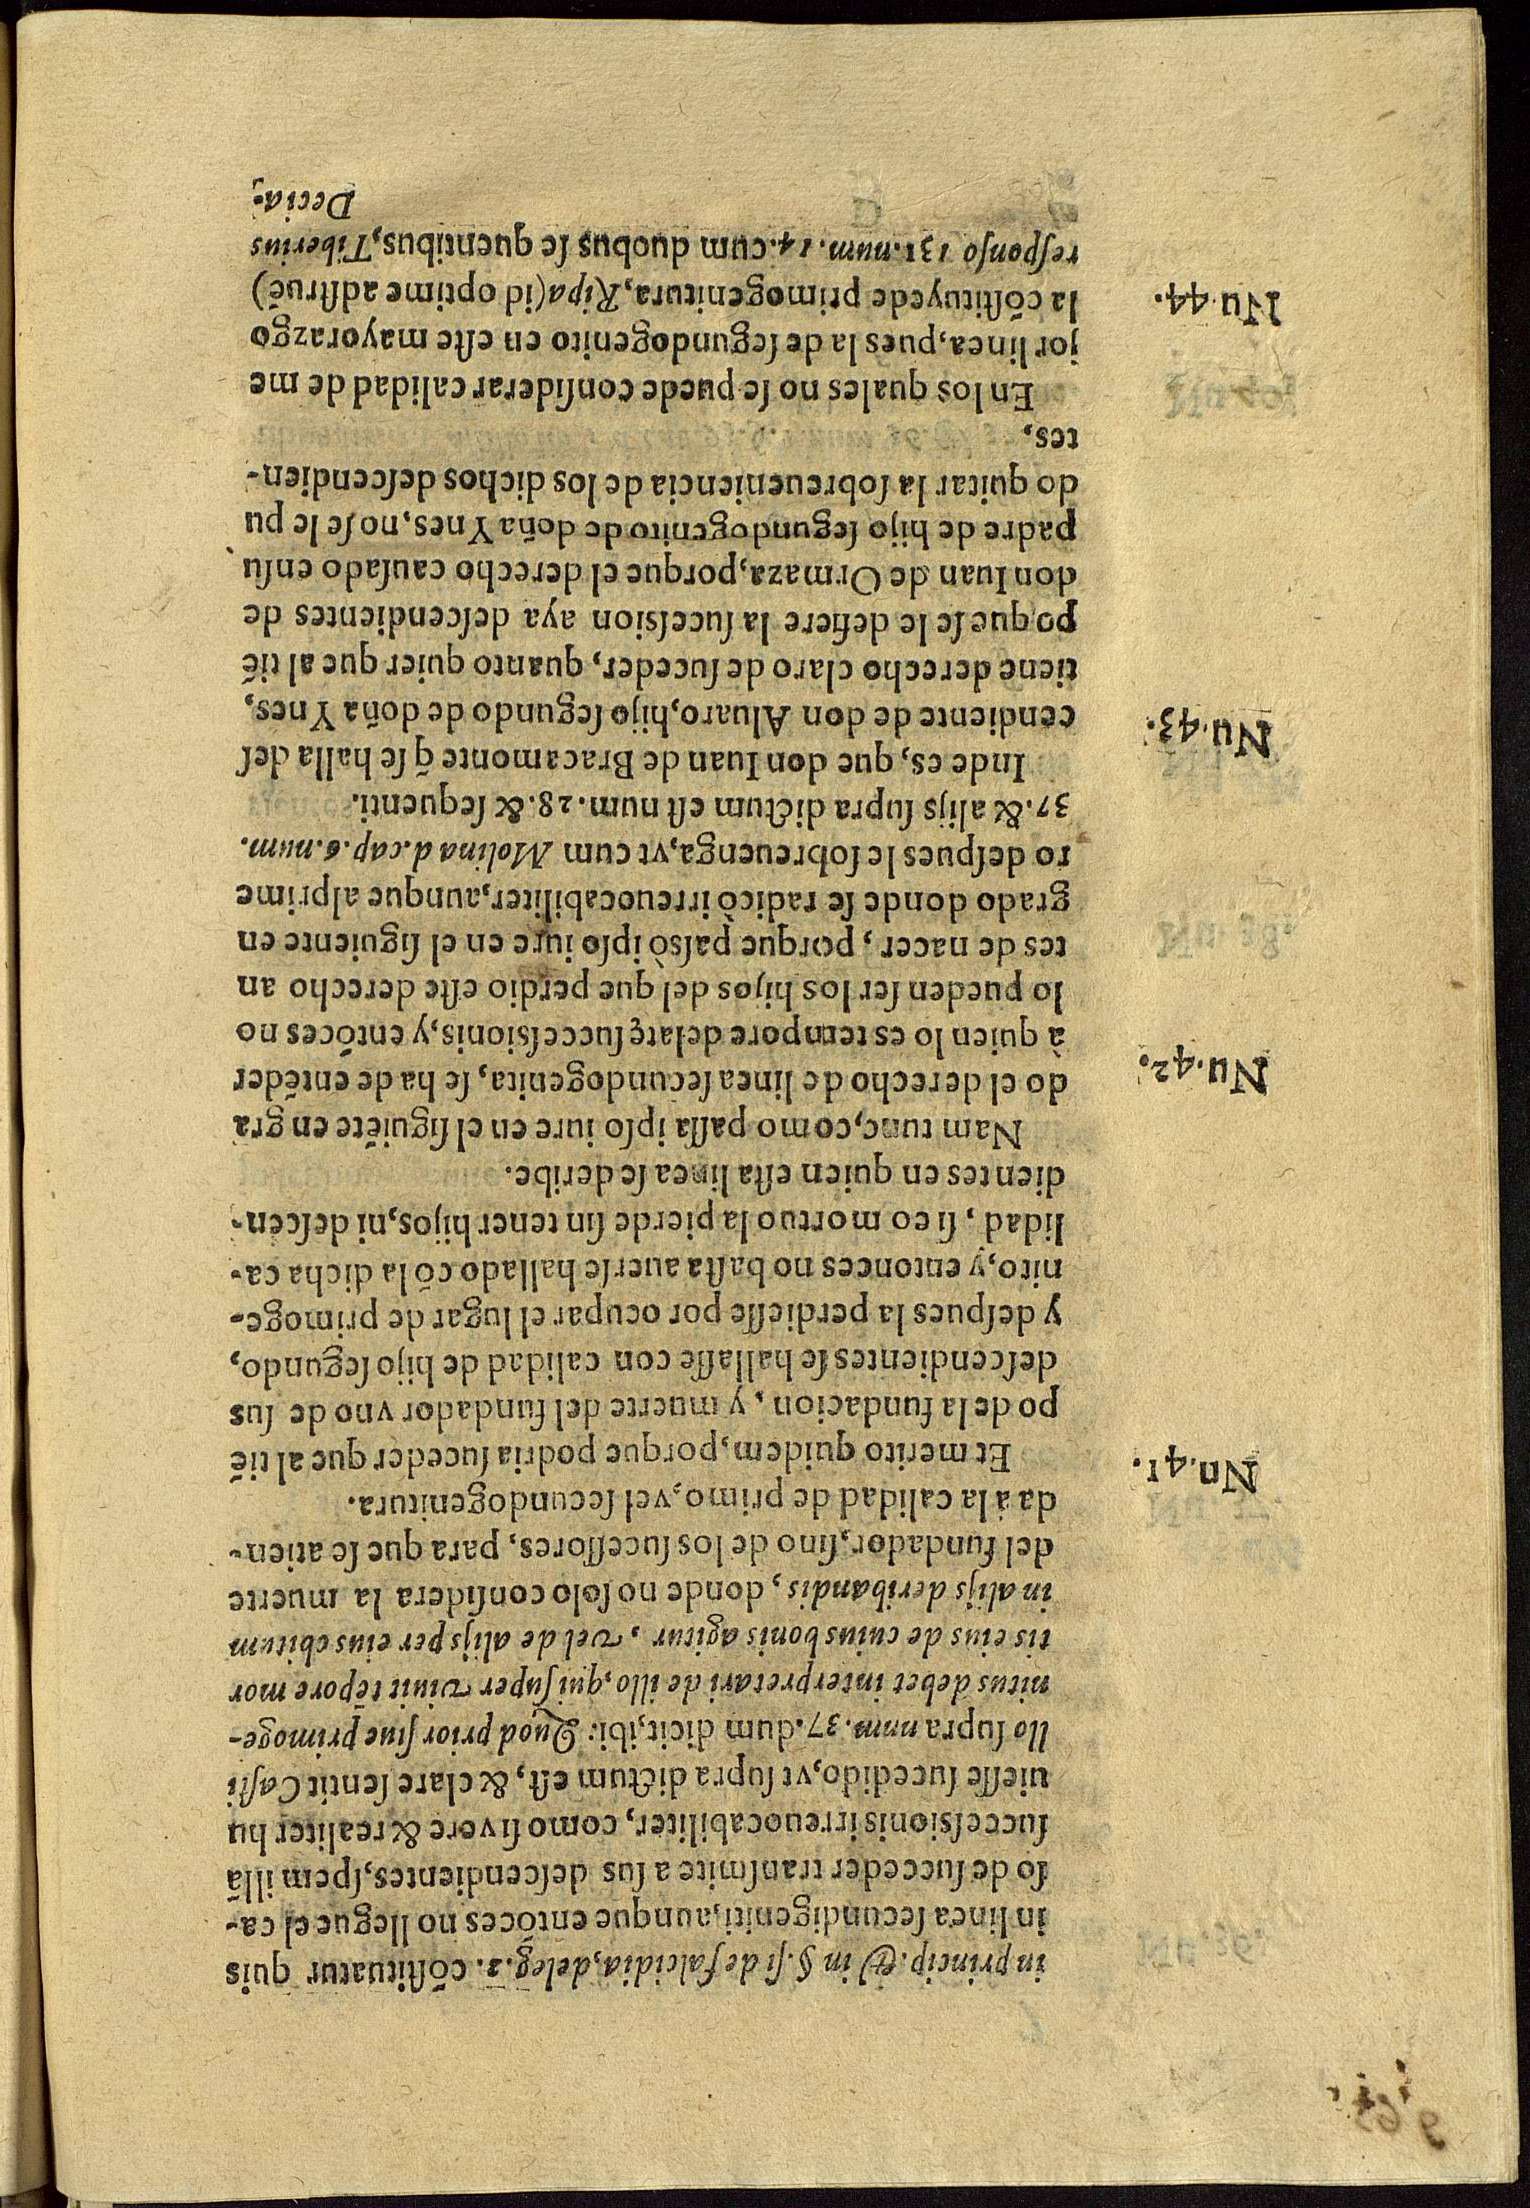 in princip. & in §. si de falcidia, de leg. 2. cõstituatur quis
in linea secundigeniti, aunque entõces no llegue el ca-
so de succeder transmite a sus descendientes, spem illã
successionis irreuocabiliter, como si vere & realiter hu
uiesse sucedido, vt supra dictum est, & clare sentit Casti
llo supra num. 37. dum dicit, ibi: Quod prior siue primoge-
nitus debet interpretari de illo, qui super viuit tẽpore mor
tis eius de cuius bonis agitur, vel de alijs per eius obitum
in alijs deribandis, donde no solo considera la muerte
del fundador, sino de los sucessores, para que se atien-
da â la calidad de primo, vel secundogenitura.
Nu. 41. Et merito quidem, porque podria suceder que al tiẽ
po de la fundacion, y muerte del fundador vno de sus
descendientes se hallasse con calidad de hijo segundo,
y despues la perdiesse por ocupar el lugar de primoge-
nito, y entonces no basta auerse hallado cõ la dicha ca-
lidad, si eo mortuo la pierde sin tener hijos, ni descen-
dientes en quien esta linea se deribe.
Nam tunc, como passa ipso iure en el siguiẽte en gra
Nu. 42. do el derecho de linea secundogenita, se ha de entẽder
à quien lo es tempore delatę successionis, y entõces no
lo pueden ser los hijos del que perdio este derecho an
tes de nacer, porque passò ipso iure en el siguiente en
grado donde se radicò irreuocabiliter, aunque al prime
ro despues le sobreuenga, vt cum Molina d. cap. 6. num.
37. & alijs supra dictum est num. 28. & sequenti.
Inde es, que don Iuan de Bracamonte q̃ se halla des
Nu. 43. cendiente de don Aluaro, hijo segundo de doña Ynes,
tiene derecho claro de suceder, quanto quier que al tiẽ
po que se le defiere la sucession aya descendientes de
don Iuan de Ormaza, porque el derecho causado en su
padre de hijo segundogenito de doña Ynes, no se le pu
do quitar la sobreueniencia de los dichos descendien-
tes,
En los quales no se puede considerar calidad de me
jor linea, pues la de segundogenito en este mayorazgo
Nu. 44. la cõstituye de primogenitura, Ripa (id optime adstruẽ)
responso 131. num. 14. cum duobus se quentibus, Tiberius
Decia-